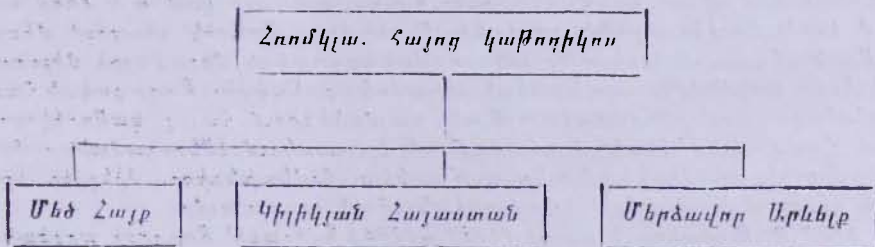 Հռոմկլա. Հայոց կաթողիկոս
Մեծ Հայք
Կիլիկյան Հայաստան
Մերձավոր Արևելք